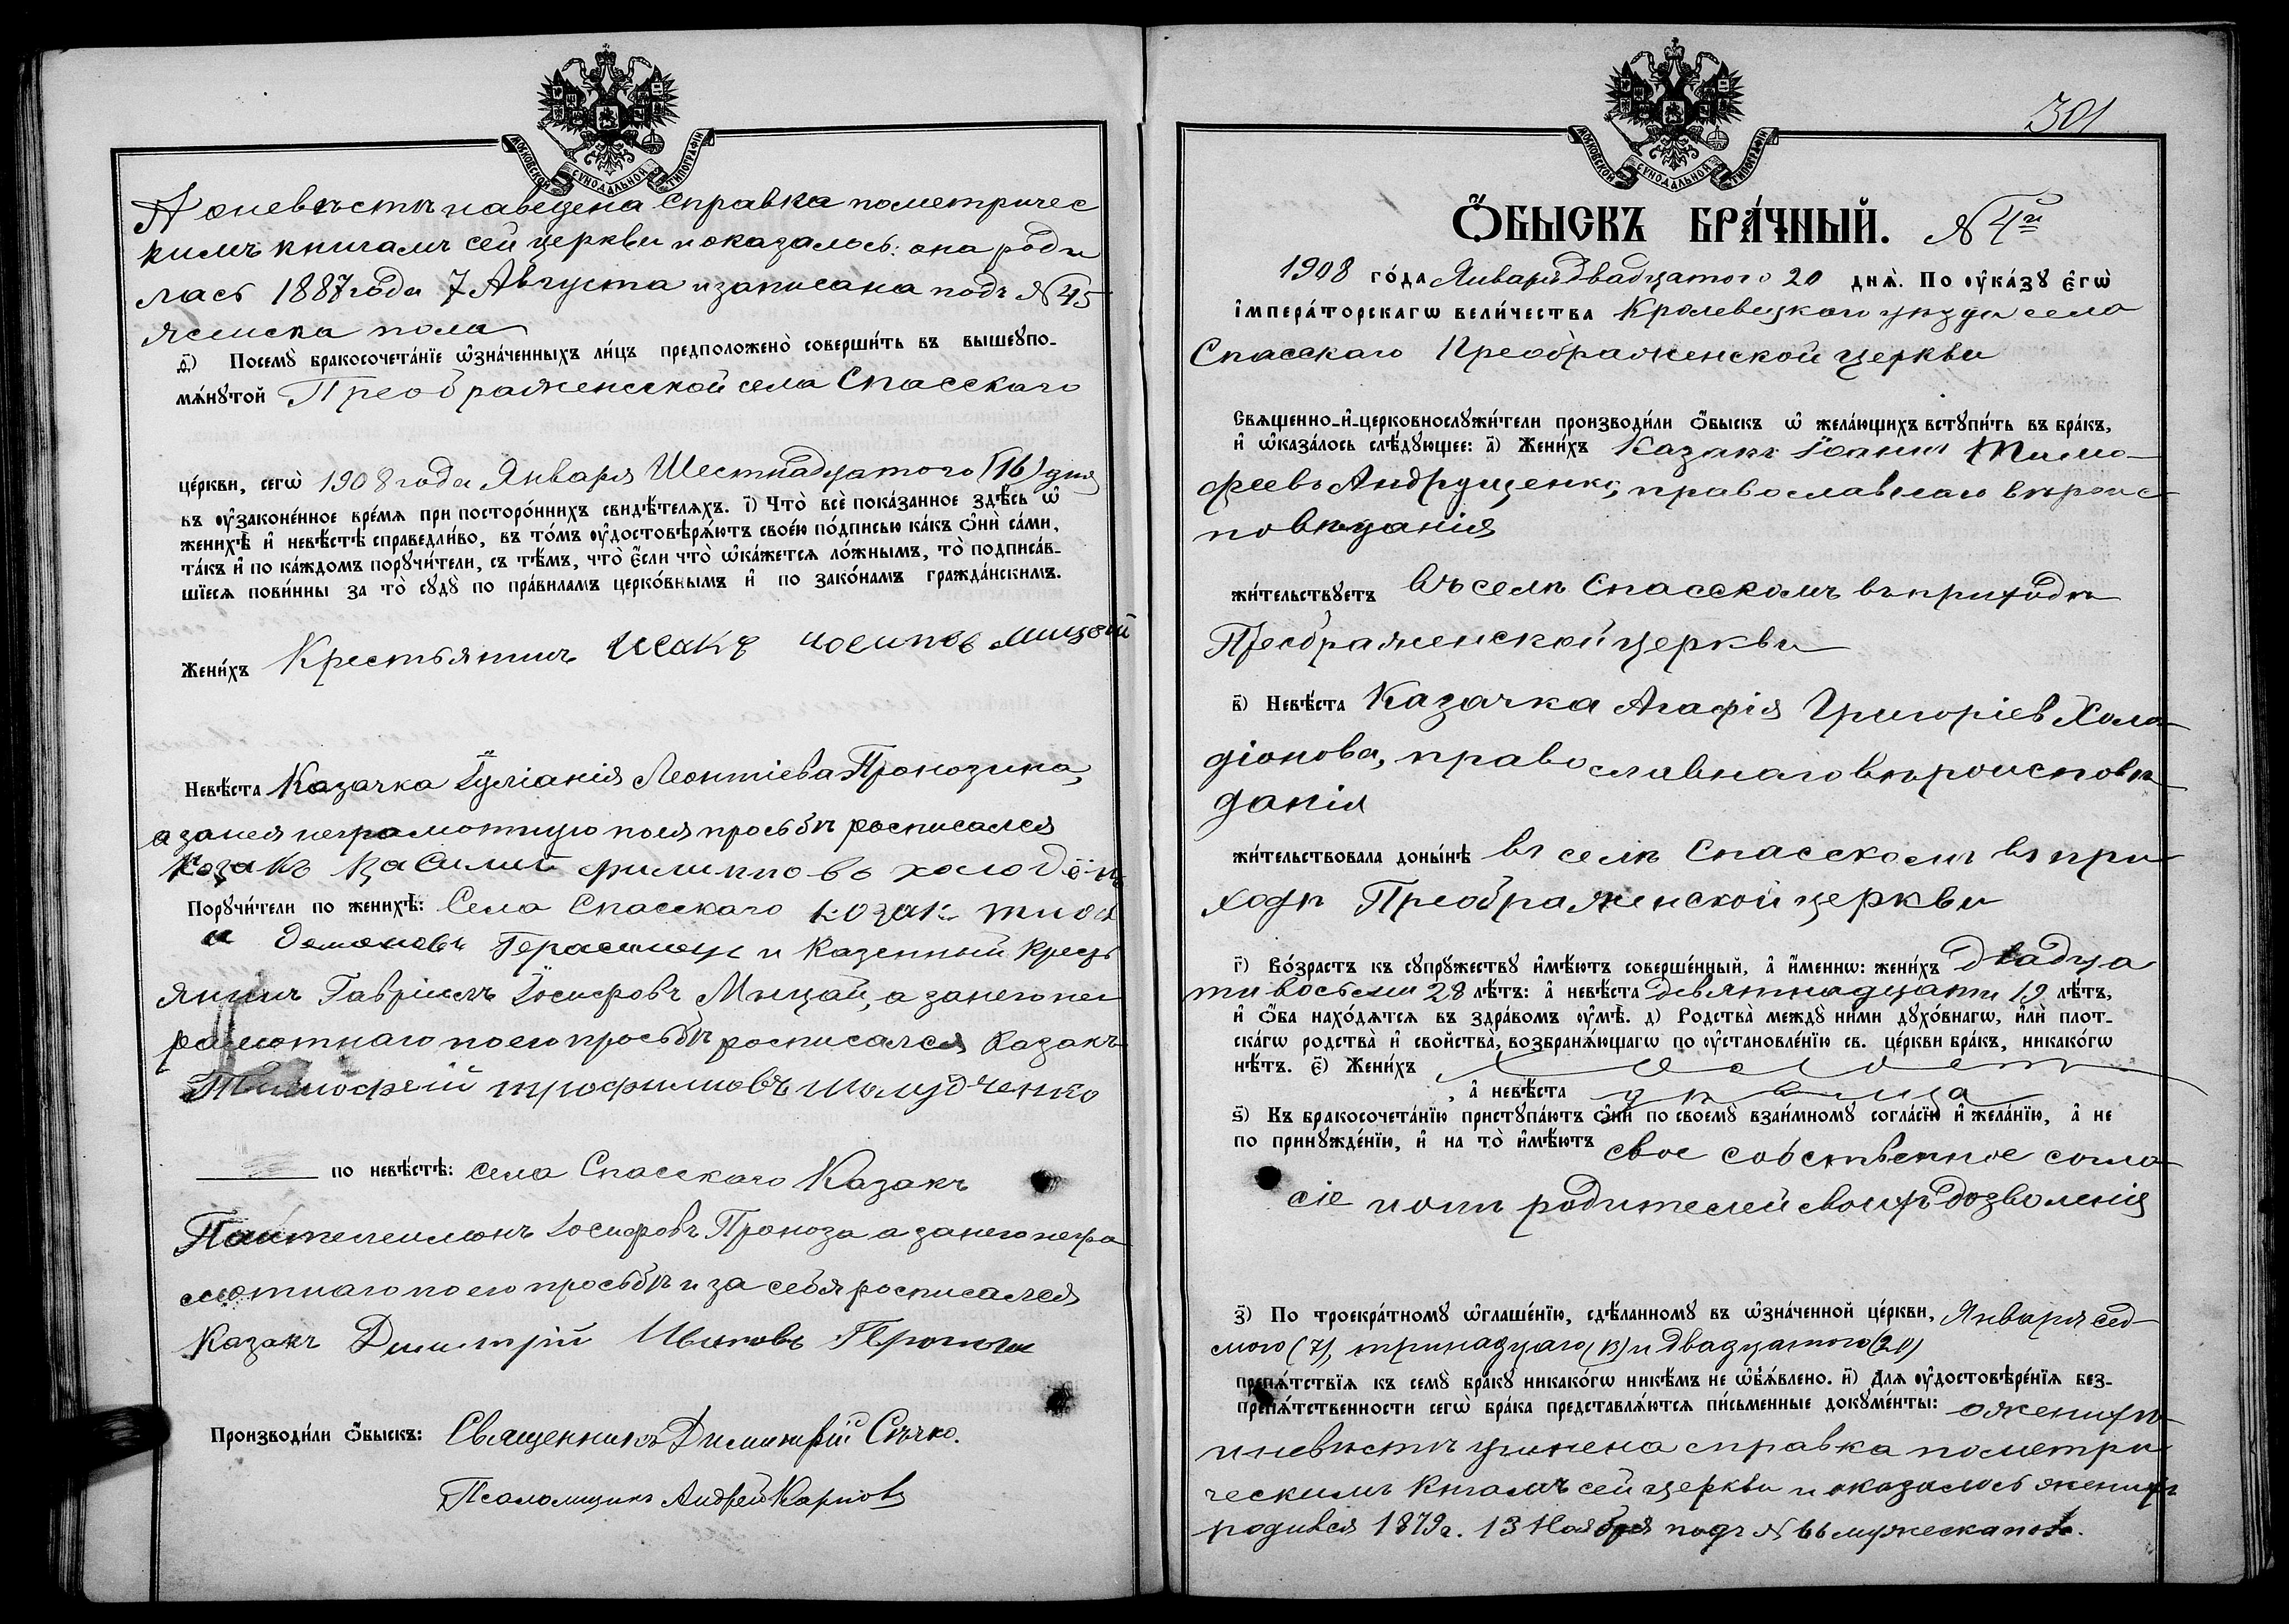 МОСКОВСКОЙ СѴНОДАЛЬНОЙ ТИПОГРАФІИ
А оневѣстѣ наведена справка пометричес
кимъ книгамъ сей церкви иоказалось: она роди
лась 1887 года 7 Августа изаписана подъ № 45
женска пола
д҃і) Посемꙋ бракосочета́нїе ѡ҆зна́ченныхъ ли́цъ предположено̀ соверши́ть въ вышеꙋпо-
мѧ́нꙋтой Преображенской села Спасскаго
це́ркви, сегѡ̀ 1908 года Января Шестнадцатого (16) дня
въ ᲂу҆законе́нное вре́мѧ при посторо́ннихъ свидѣ́телѧхъ. і҃) Что̀ всѐ пока́занное здѣ́сь ѡ҆
женихѣ̀ и҆ невѣ́стѣ справедли́во, въ то́мъ ᲂу҆достовѣрѧ́ютъ свое́ю по́дписью ка́къ ѻ҆нѝ са́ми,
та́къ и҆ по ка́ждомъ порꙋчи́тели, съ тѣ́мъ, что̀ є҆́сли что̀ ѡ҆ка́жетсѧ ло́жнымъ, то̀ подписа́в-
шїесѧ пови́нны за то̀ сꙋдꙋ̀ по пра́виламъ церко́внымъ и҆ по зако́намъ гражда́нскимъ.
Жени́хъ Крестьянинъ Исакъ иосипов мицай
Невѣ́ста Казачка Іуліанія Леонтіева Пронозина,
а занея неграмотную поея просьбѣ росписался
козакъ Василий филипповъ холодіон
Порꙋчи́тели по женихѣ̀: Села Спасскаго козак
Герасимец и Казенный Кресть
янинъ Гавріилъ Іосифовъ Мицай, а занего нег
рамотнаго поего просьбѣ росписался Казакъ
Тимофей трофимовъ шолудченко
по невѣ́стѣ: села Спасскаго Казакъ
Пантелеимонъ Іосифовъ Проноза а занего негра
мотнаго поего просьбѣ и за себя росписался
Казакъ Димитрій Ивановъ Проноза
Производи́ли ѻ҆́быскъ: Священникъ Димитрій Сѣчко.
Псаломщикъ Андрей Карповъ
301
МОСКОВСКОЙ СѴНОДАЛЬНОЙ ТИПОГРАФІИ
Ѻ҆́БЫСКЪ БРА́ЧНЫЙ. № 4й
1908 го́да Января двадцатого 20 днѧ̀. По ᲂу҆ка́зꙋ є҆гѡ̀
і҆мпера́торскагѡ вели́чества Кролевецкаго уѣзда села
Спасскаго Преображенской церкви
Свѧщенно-и҆-церковнослꙋжи́тели производи́ли ѻ҆́быскъ ѡ҆ жела́ющихъ встꙋпи́ть въ бра́къ,
и҆ ѡ҆каза́лось слѣ́дꙋющее: а҃) Жени́хъ Казакъ Іоаннъ Тимо-
феевъ Андрущенко, православнаго вѣроис-
повѣданія
жи́тельствꙋетъ въ селѣ Спасскомъ въ приходѣ
Преображенской церкви
в҃) Невѣ́ста Казачка Агафія Григоріев Холо-
діонова, православнаго вѣроисповѣ-
данія
жи́тельствовала доны́нѣ въ селѣ Спасскомъ въ при-
ходѣ Преображенской церкви
г҃) Во́зрастъ къ сꙋпрꙋ́жествꙋ и҆мѣ́ютъ соверше́нный, а҆ и҆́меннѡ: жени́хъ двадца
ти восьми 28 лѣ́тъ: а҆ невѣ́ста девятнадцати 19 лѣ́тъ,
и҆ ѻ҆́ба нахо́дѧтсѧ въ здра́вомъ ᲂу҆мѣ̀. д҃) Родства̀ междꙋ̀ ни́ми дꙋхо́внагѡ, и҆лѝ плот-
ска́гѡ родства̀ и҆ сво́йства̀, возбранѧ́ющагѡ по ᲂу҆становле́нїю св. це́ркви бра́къ, никако́гѡ
нѣ́тъ. є҃) Жени́хъ холост
, а҆ невѣ́ста дѣвица
ѕ҃) Къ бракосочета́нїю пристꙋпа́ютъ ѻ҆нѝ по своемꙋ̀ взаи́мномꙋ согла́сїю и҆ жела́нїю, а҆ не
по принꙋжде́нїю, и҆ на то̀ и҆мѣ́ютъ свое собственное согла-
сіе и отъ родителей своихъ дозволенія
з҃) По троекра́тномꙋ ѡ҆глаше́нїю, сдѣ́ланномꙋ въ ѡ҆зна́ченной це́ркви, Января сед-
мого (7), тринадцаго (13) и двадцатого (20)
препѧ́тствїѧ къ семꙋ̀ бра́кꙋ никако́гѡ никѣ́мъ не ѡ҆б̾ѧ́влено. и҃) Длѧ ᲂу҆достовѣре́нїѧ без-
препѧ́тственности сегѡ̀ бра́ка представлѧ́ютсѧ пи́сьменные докꙋме́нты: оженихѣ
иневѣстѣ учинена справка пометри
ческимъ кнгамъ сей церкви и оказалось женихъ
родился 1879 г. 13 Ноября подъ № 66 мужеска пола.